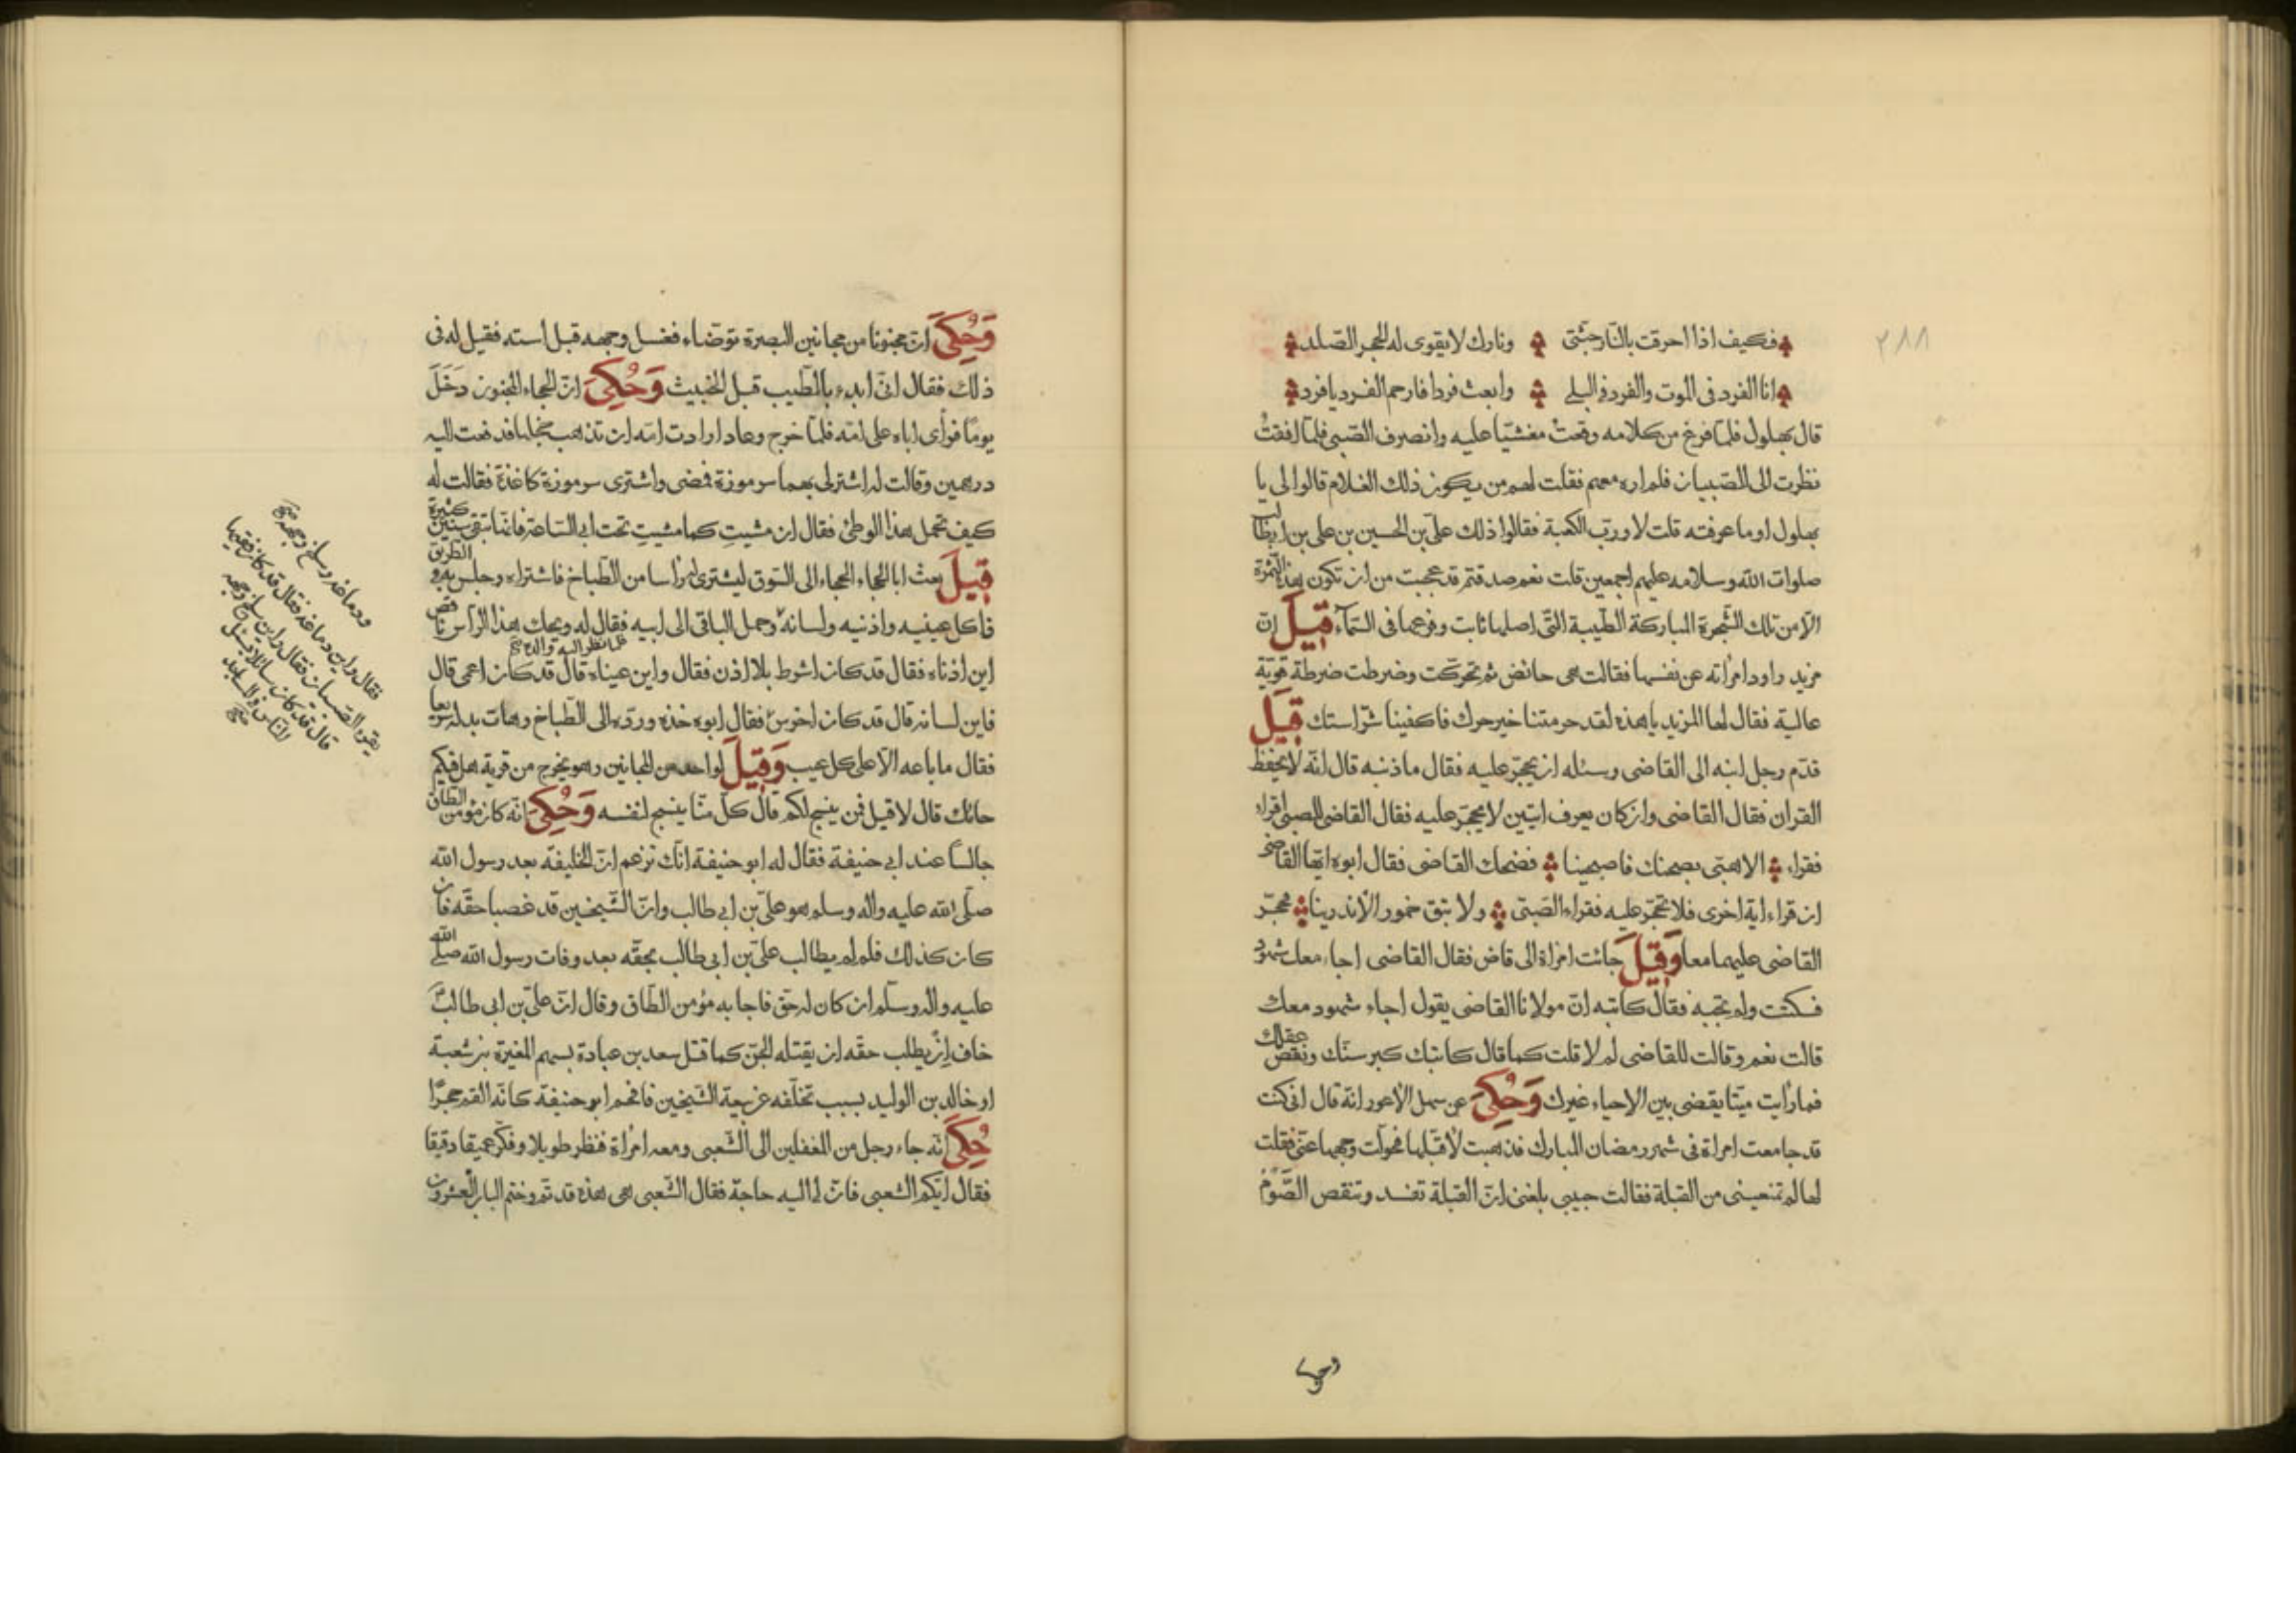 ٢٨٨
فكيف اذا احرقت بالنار جثتى ونارك لا يقوى له الحجر الصلد
انا الفرد فى الموت والفرد فى البلى وابعث فردا فارحم الفرد يا فرد
قال بهلول فلمّا فرغ من كلامه وقعت مغشيّا عليه وانصرف الصّبى فلمّا افقت
نظرت الى الصّبيان فلم اره معهم فقلت لهم من يكون ذلك الغلام قالوا لى يا
بهلول او ما عرفته قلت لا وربّ الكعبة فقالوا ذلك علىّ بن الحسين بن على بن ابيطالب
صلوات الله وسلامه عليهم اجمعين قلت نعم صدقتم قد عجبت من ان تكون هذه الثّمرة
الّا من تلك الشّجرة المباركة الطّيبة الّتى اصلها ثابت وفرعها فى السّمآء قيل انّ
مزيد راود امرأته عن نفسها فقالت هى حائض ثم تحرّكت وضرطت ضرطة قويّة
عالية فقال لها المزيد يا هذه لقد حرمتنا خير حرك فاكفينا شرّ استك قيل
قدّم رجل ابنه الى القاضى وسئله ان يحجّر عليه فقال ما ذنبه قال انّه لا يحفظ
القران فقال القاضى وان كان يعرف ايتين لا يحجّر عليه فقال القاضى للصبى اقراء
فقراء الا هبّى بصحنك فاصبحينا فضحك القاضى فقال ابوه ايّها القاضى
ان قراء اية اخرى فلا تحجّر عليه فقراء الصّبى ولا تبق خمور الأندرينا فحجّر
القاضى عليهما معا وقيل جائت امراة الى قاض فقال القاضى اجاء معك شهود
فسكتت ولم تجبه فقال كاتبه انّ مولانا القاضى يقول اجاء شهود معك
قالت نعم وقالت للقاضى لم لا قلت كما قال كاتبك كبر سنّك ونقص عقلك
فما رأيت ميّتا يقضى بين الاحياء غيرك وحكى عن سهل الأعور انّه قال انى كنت
قد جامعت امراة فى شهر رمضان المبارك فذهبت لأقبّلها فحوّلت وجهها عنّى فقلت
لها لم تمنعينى من القبلة فقالت حبيبى بلغنى انّ القبلة تفسد وتنقص الصّوم
وحكى
وحكى انّ مجنونا من مجانين البصرة توضّاء فغسل وجهه قبل استه فقيل له فى
ذلك فقال انّى ابدء بالطّيب قبل الخبيث وحكى انّ الجحاء المجنون دخل
يوما فرأى اباه على امّه فلمّا خرج وعاد ارادت امّه ان تذهب خجلها فدفعت اليه
درهمين وقالت له اشتر لى بهما سرموزة فمضى واشترى سرموزة كاغذة فقالت له
كيف تحمل هذا الوطئ فقال ان مشيتِ كما مشيتِ تحت ابى السّاعة فانّها تبقى سنين كثيرة
قيل بعث ابا الجحاء الجحاء الى السّوق ليشترى له رأسا من الطّباخ فاشتراه وجلس به فى الطّريق
فاكل عينيه واذنيه ولسانه وحمل الباقى الى ابيه فقال له ويحك هذا الرأس ناقص
فلمّا نظر اليه والده
اين اذناه فقال قد كان اشوط بلا اذن فقال واين عيناه قال قد كان اعمى قال
فاين لسانه قال قد كان اخرس فقال ابوه خذه وردّه الى الطّباخ وهات بدله سريعا
فقال ما باعه الّا على كل عيب وقيل لواحد من المجانين وهو يخرج من قرية هل فيكم
حائك قال لا قيل فمن ينسج لكم قال كلّ منّا ينسج لنفسه وحكى انّه كان مؤمن الطّاق
جالسًا عند ابى حنيفة فقال له ابو حنيفة انّك تزعم انّ الخليفة بعد رسول الله
صلّى الله عليه واله وسلم هو علىّ بن ابى طالب وانّ الشّيخين قد غصبا حقّه فان
كان كذلك فلم لم يطالب علىّ بن ابى طالب بحقّه بعد وفات رسول الله صلّى الله
عليه واله وسلّم ان كان له حقّ فاجابه مؤمن الطّاق وقال انّ علىّ بن ابى طالب
خاف ان يطلب حقّه ان يقتله الجنّ كما قتل سعد بن عبادة بسهم المغيرة بن شعبة
او خالد بن الوليد بسبب تخلّفه عن بيعة الشّيخين فافحم ابو حنيفة كانّه القم حجرًا
حكى انّه جاء رجل من المغفلين الى الشّعبى ومعه امرأة فنظر طويلا وفكّر عميقا دقيقا
فقال ايّكم الشعبى فانّ لى اليه حاجة فقال الشّعبى هى هذه قد تم وختم الباب العشرون
ودماغه وسلخ وجهه
فقال واين دماغه فقال قد كان فقيها
يقرء الصّبيان فقال واين سلخ وجهه
قال قد كان سائلا يسئل
النّاس فى المساجد